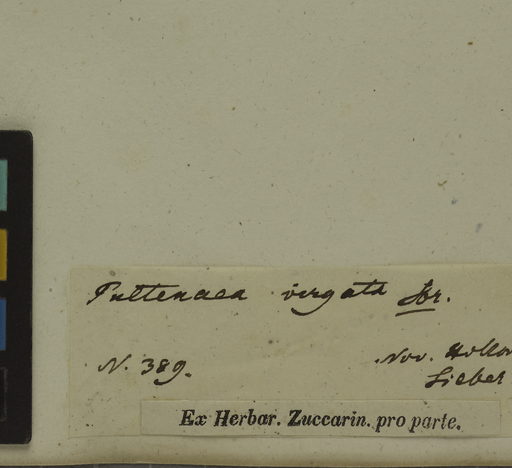 Pultenaea virgata Spr.
N. 389.
Nov. Hollan
Sieber
Ex Herbar. Zuccarin. pro parte.